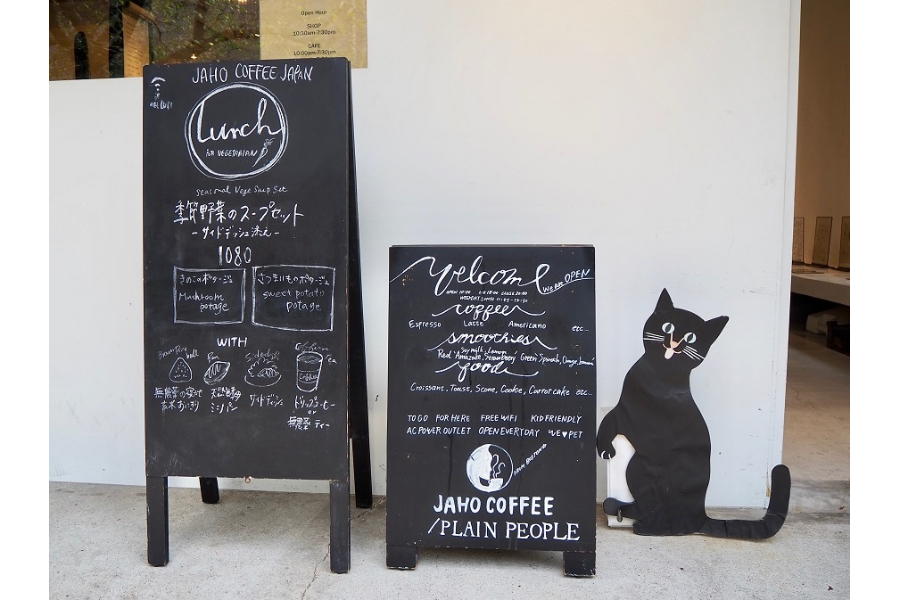 Open Hour
SHOP
10:30am-7:30pm
CAFE
10:00am-7:30pm
JAHO COFFEE JAPAN
Lunch
for VEGETARIAN
Seasonal Vege Soup Set
季節野菜のスープセット
-サイドディッシュ添え-
1080
きのこのポタージュ
Mushroom
potage
さつまいものポタージュ
sweet potato
potage
WITH
Brown Rice
ball
Pan
Sidedish
Coffee
Tea
無農薬
玄米おにぎり
天然酵母
ミニパン
サイドディッシュ
ドリップコーヒー
or
ティー
Welcome
We Are OPEN
coffee
Espresso Latte Americano etc...
smoothies
Soy milk, Lemon
Red Amazon, Strawberry Green Spinach, Orange, banana
food
Croissant, Toast, Scone, Cookie, Carrot cake etc...
TO GO FOR HERE FREE WIFI KID FRIENDLY
AC POWER OUTLET OPEN EVERYDAY WE♥PET
FROM BOSTON
JAHO COFFEE
/PLAIN PEOPLE